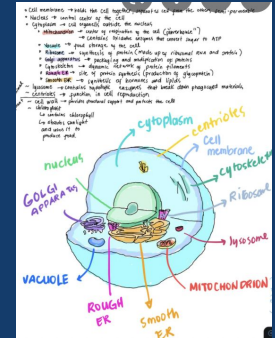 • Cell membrane → holds the cell together, separates one cell from the others, semi-permeable
• Nucleus → control center of the cell
• Cytoplasm → cell organelles outside the nucleus
• Mitochondrion → center of respiration of the cell ("powerhouse")
→ contains enzymes that convert sugar to ATP
• Vacuole → food storage of the cell
• Ribosome → synthesis of protein (made up of ribosomal RNA and protein)
• Golgi apparatus → packaging and modification of proteins
• Cytoskeleton → dynamic network of protein filaments
• Rough ER → site of protein synthesis (production of glycoprotein)
• Smooth ER → synthesis of hormones and lipids
– lysosome → contains enzymes that break down phagocyted materials
– centrioles → function in cell reproduction
– cell wall → provides structural support and protects the cells
– chloroplast
↳ contains chlorophyll
↳ absorbs sunlight
and uses it to
produce food
cytoplasm
centrioles
cell
membrane
nucleus
cytoskelet
GOLGI
APPARATUS
Ribosome
lysosome
VACUOLE
MITOCHONDRION
ROUGH
ER
smooth
ER